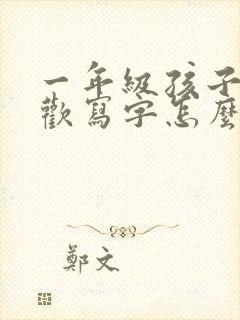 一年級孩子
歡寫字怎麼
鄭文